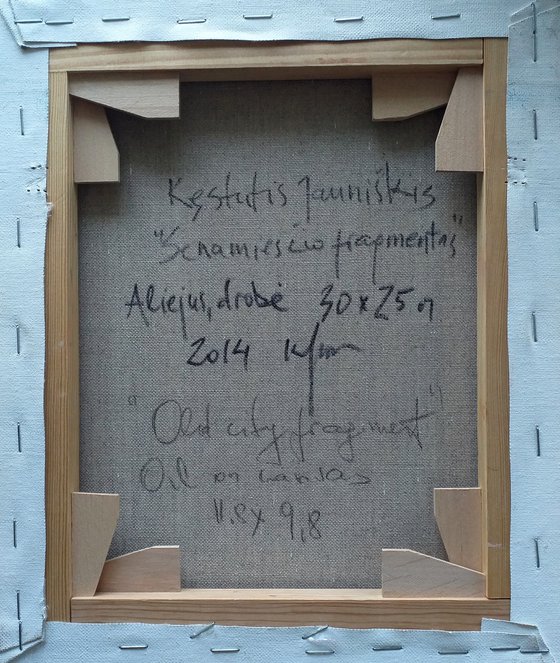 Kęstutis Jauniškis
"Senamiesčio fragmentas"
Aliejus, drobė 30x25
2014
"Old city fragment"
Oil on canvas
11.8x 9,8